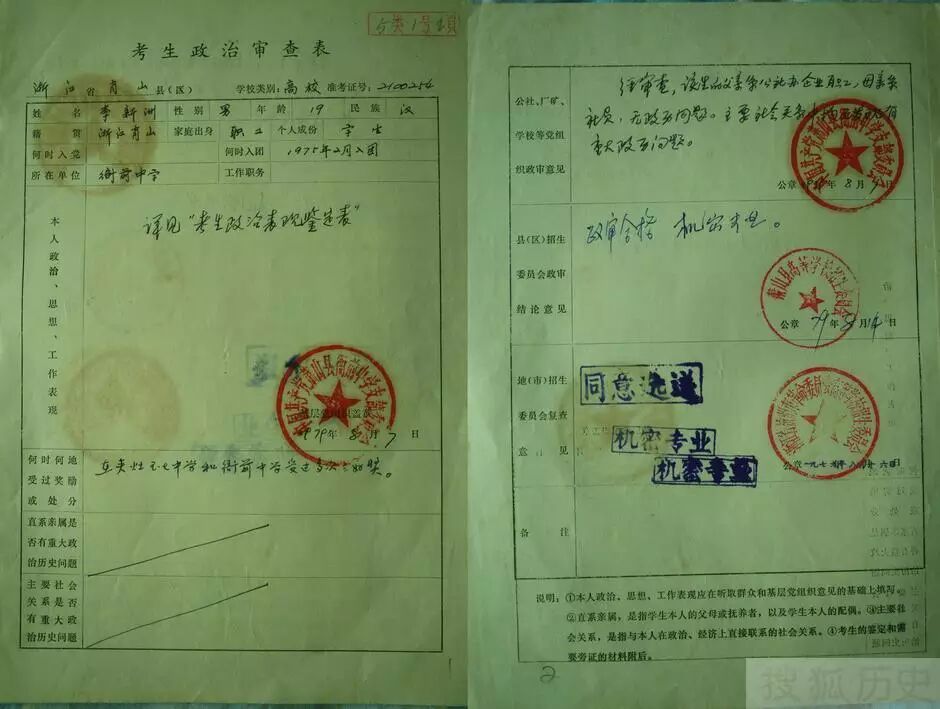 5类1号2頁
考生政治审查表
浙江省肖山县(区) 学校类别:高校 准考证号:2100254
姓名 李新洲 性别 男 年龄 19 民族 汉
籍贯 浙江肖山 家庭出身 职工 个人成份 学生
何时入党 何时入团 1975年2月入团
所在单位 衙前中学 工作职务
本人政治、思想、工作表现
详见“考生政治表现鉴定表”
基层党组织盖章
1979年8月7日
何时何地
受过奖励
或处分
直系亲属是
否有重大政
治历史问题
主要社会
关系是否
有重大政
治历史问题
公社、厂矿、
学校等党组
织政审意见
经审查,该生的父亲系公社办企业职工,母亲系
社员,无政历问题。主要社会关系
重大政历问题。
公章 年8月 日
县(区)招生
委员会政审
结论意见
政审合格 机密专业。
萧山县高等学校招生委员会
公章 79年8月14日
地(市)招生
委员会复查
意见
同意选送
机密专业
机密专业
公章 一九七九年八月十六日
备注
说明:①本人政治、思想、工作表现应在听取群众和基层党组织意见的基础上填写。
②直系亲属,是指学生本人的父母或抚养者,以及学生本人的配偶。③主要社
会关系,是指与本人在政治、经济上直接联系的社会关系。④考生的鉴定和需
要旁证的材料附后。
2
搜狐历史